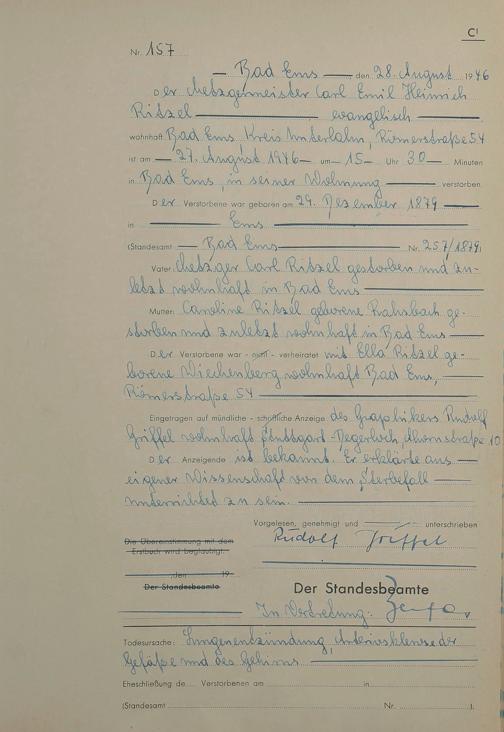 C¹
Nr. 157
Bad Ems den 28. August 1946
Der Metzgermeister Carl Emil Heinrich
Ritzel evangelisch
wohnhaft Bad Ems Kreis Unterlahn, Römerstraße 54
ist am 27. August 1946 um 15 Uhr 30 Minuten
in Bad Ems, in seiner Wohnung verstorben.
Der Verstorbene war geboren am 29. Dezember 1879
in Ems
(Standesamt Bad Ems Nr. 257/1879)
Vater: Metzger Carl Ritzel gestorben und zu-
letzt wohnhaft in Bad Ems
Mutter: Caroline Ritzel geborene ge-
storben und zuletzt wohnhaft in Bad Ems
Der Verstorbene war - nicht - verheiratet mit Ella Ritzel ge-
borene Wiechenberg wohnhaft Bad Ems,
Römerstraße 54
Eingetragen auf mündliche - schriftliche Anzeige des Graphikers Rudolf
Griffel wohnhaft Stuttgart-Degerloch, 10
Der Anzeigende ist bekannt. Er erklärte aus
eigener Wissenschaft von dem Sterbefall
unterrichtet zu sein.
Vorgelesen, genehmigt und unterschrieben
Rudolf Griffel
Die Übereinstimmung mit dem
Erstbuch wird beglaubigt.
, den 19
Der Standesbeamte
Der Standesbeamte
In Vertretung:
Todesursache: Lungenentzündung, Arteriosklerose der
Gefäße und des Gehirns
Eheschließung de Verstorbenen am in
(Standesamt Nr. ).